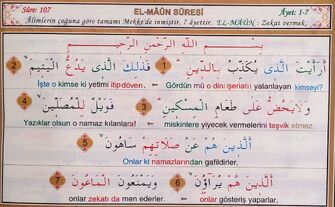 Sûre: 107 EL-MÂÛN SÛRESİ Âyet: 1-7
Âlimlerin çoğuna göre tamamı Mekke'de inmiştir, 7 âyettir. EL-MÂÛN: Zekat vermek.
بِسْمِ اللّٰهِ الرَّحْمٰنِ الرَّحِيمِ
أَرَأَيْتَ الَّذِى يُكَذِّبُ بِالدِّينِ ١ فَذٰلِكَ الَّذِى يَدُعُّ الْيَتِيمَ ٢
Gördün mü o dini (şeriatı) yalanlayan kimseyi? 1 İşte o kimse ki yetimi itip döven, 2
وَلَا يَحُضُّ عَلٰى طَعَامِ الْمِسْكِينِ ٣ فَوَيْلٌ لِلْمُصَلِّينَ ٤
miskinlere yiyecek vermelerini teşvik etmez. 3 Yazıklar olsun o namaz kılanlara! 4
اَلَّذِينَ هُمْ عَنْ صَلَاتِهِمْ سَاهُونَ ٥
Onlar ki namazlarından gafildirler, 5
اَلَّذِينَ هُمْ يُرَآؤُنَ ٦ وَيَمْنَعُونَ الْمَاعُونَ ٧
onlar gösteriş yaparlar, 6 onlar zekatı da men ederler. 7